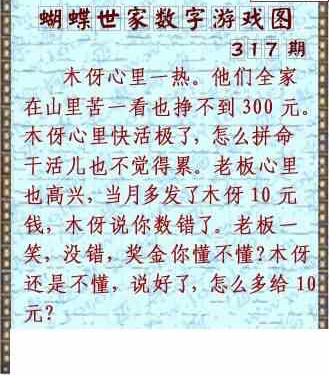 蝴蝶世家数字游戏图
317期
木伢心里一热。他们全家
在山里苦一看也挣不到300元。
木伢心里快活极了,怎么拼命
干活儿也不觉得累。老板心里
也高兴,当月多发了木伢10元
钱,木伢说你数错了。老板一
笑,没错,奖金你懂不懂?木伢
还是不懂,说好了,怎么多给10
元?